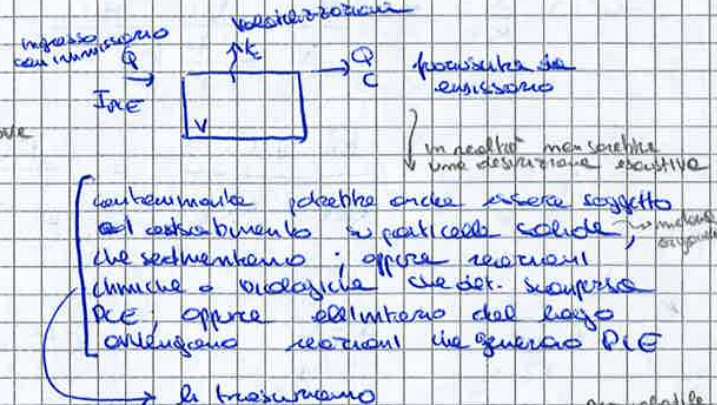 volatilizzazione
ingresso
con immissario
Q
k
Q
C
fuoriuscita da
emissario
I PCE
V
in realtà non sarebbe
una descrizione esaustiva
contaminante potrebbe anche essere soggetto
ad adsorbimento su particelle solide,
che sedimentano; oppure reazioni
chimiche o biologiche che det. scomparsa
PCE; oppure all'interno del lago
avvengono reazioni che generano PCE
li trascuriamo